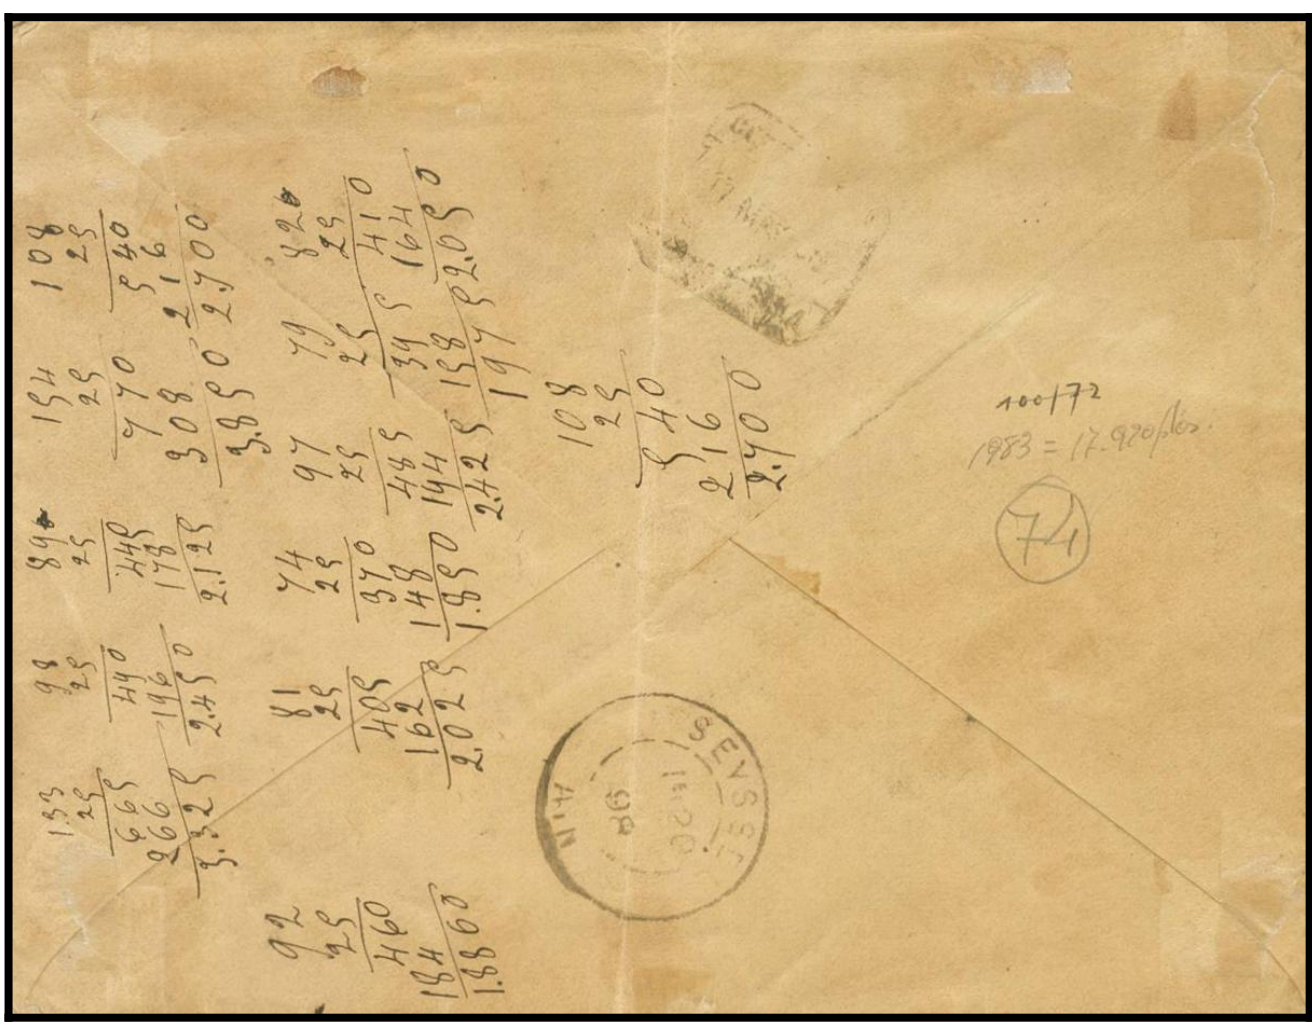 108
25
540
216
2.700
154
25
770
308
3.850
89
25
445
178
2.125
98
25
490
196
2.450
133
25
665
266
3.325
82
25
410
164
2.050
79
25
395
158
1975
97
25
485
194
2.425
74
25
370
148
1.850
81
25
405
162
2.025
92
25
460
184
1.8860
108
25
540
216
2.700
100/72
1983 = 17.920 ptas.
74
SEYSSEL
AIN